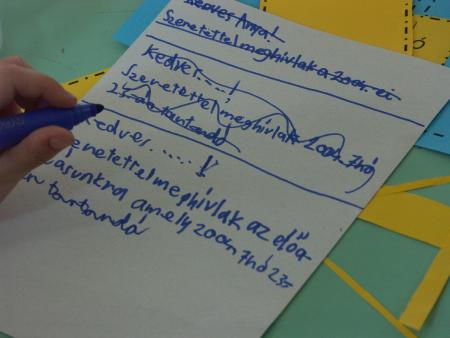 Kedves Anna!
Szeretettel meghívlak a 2004. évi
Kedves.....!
Szeretettel meghívlak 2004. 7hó
23-de tartandó
Kedves ..... !
Szeretettel meghívlak az előa-
dásunkra amely 2004 7hó 23-
án tartandó
ó